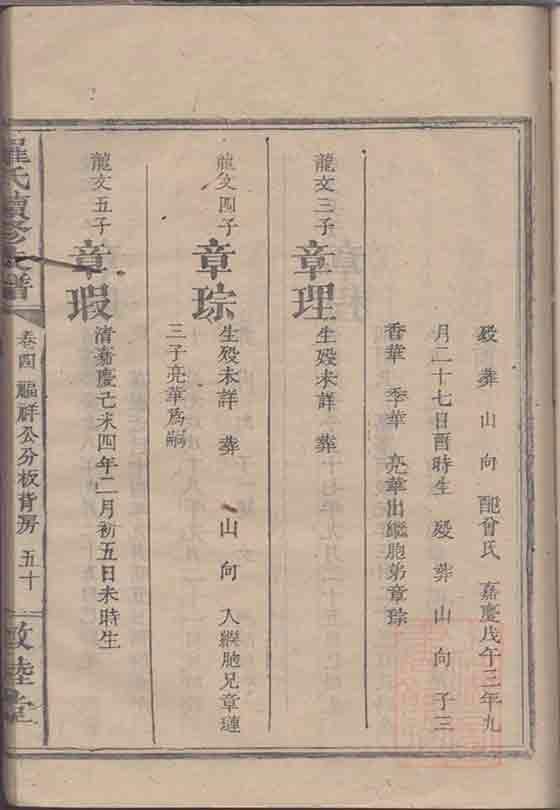 殁 葬 山 向 配曾氏 嘉慶戊午三年九
月二十七日酉時生 殁 葬 山 向 子三
香華 季華 亮華出繼胞弟章琮
龍文三子
章理
生殁未詳 葬
龍文四子
章琮
生殁未詳 葬 山 向 入繼胞兄章璉
三子亮華爲嗣
龍文五子
章瑕
清嘉慶己未四年二月初五日未時生
羅氏續修支譜
卷四 福祥公分板背房 五十
敦睦堂